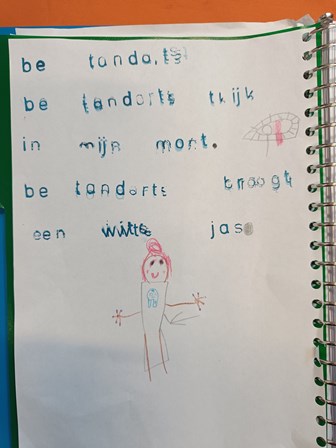 be tandarts
be tandarts tkijk
in mijn mont.
be tandarts traagt
een witte jas